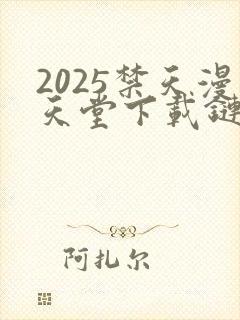 2025禁天漫
天堂下載鏈
阿扎尔